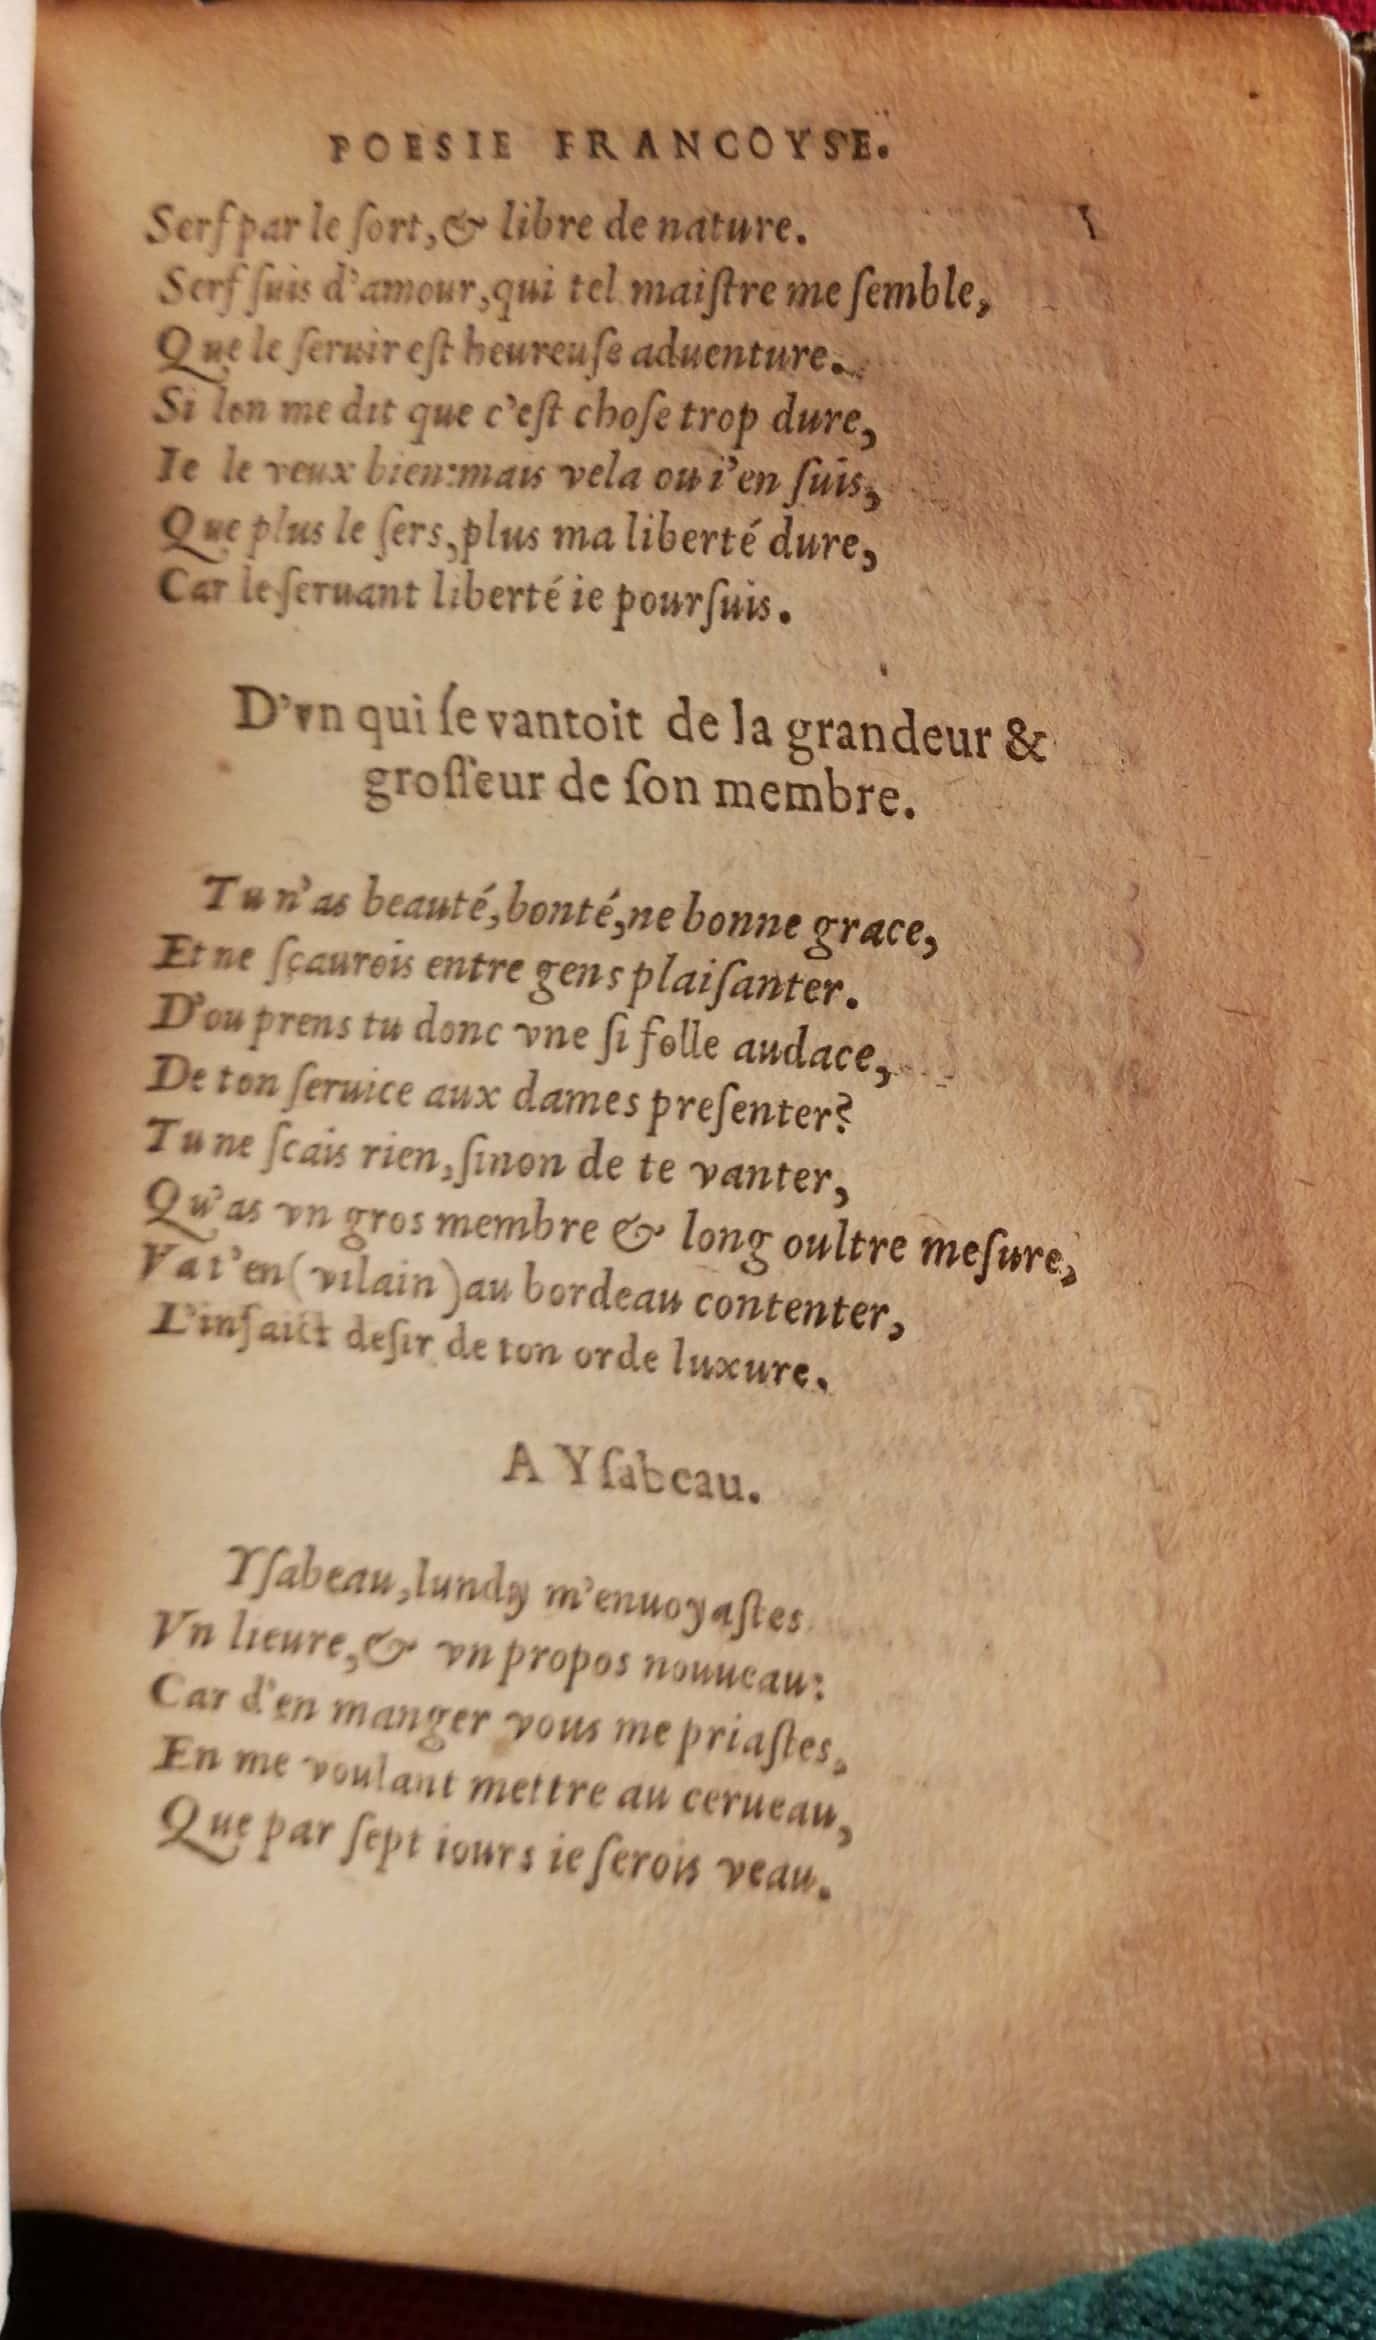 POESIE FRANCOYSE.
Serf par le ſort, & libre de nature.
Serf ſuis d'amour, qui tel maiſtre me ſemble,
Que le ſeruir eſt heureuſe aduenture.
Si lon me dit que c'eſt choſe trop dure,
Ie le veux bien: mais vela ou i'en ſuis,
Que plus le ſers, plus ma liberté dure,
Car le ſeruant liberté ie pourſuis.
D'vn qui ſe vantoit de la grandeur &
groſſeur de ſon membre.
Tu n'as beauté, bonté, ne bonne grace,
Et ne ſçaurois entre gens plaiſanter.
D'ou prens tu donc vne ſi folle audace,
De ton ſeruice aux dames preſenter?
Tu ne ſcais rien, ſinon de te vanter,
Qu'as vn gros membre & long oultre meſure,
Va t'en (vilain) au bordeau contenter,
L'infaict deſir de ton orde luxure.
A Yſabeau.
Yſabeau, lundy m'enuoyaſtes
Vn lieure, & vn propos nouueau:
Car d'en manger vous me priaſtes,
En me voulant mettre au cerueau,
Que par ſept iours ie ſerois veau.